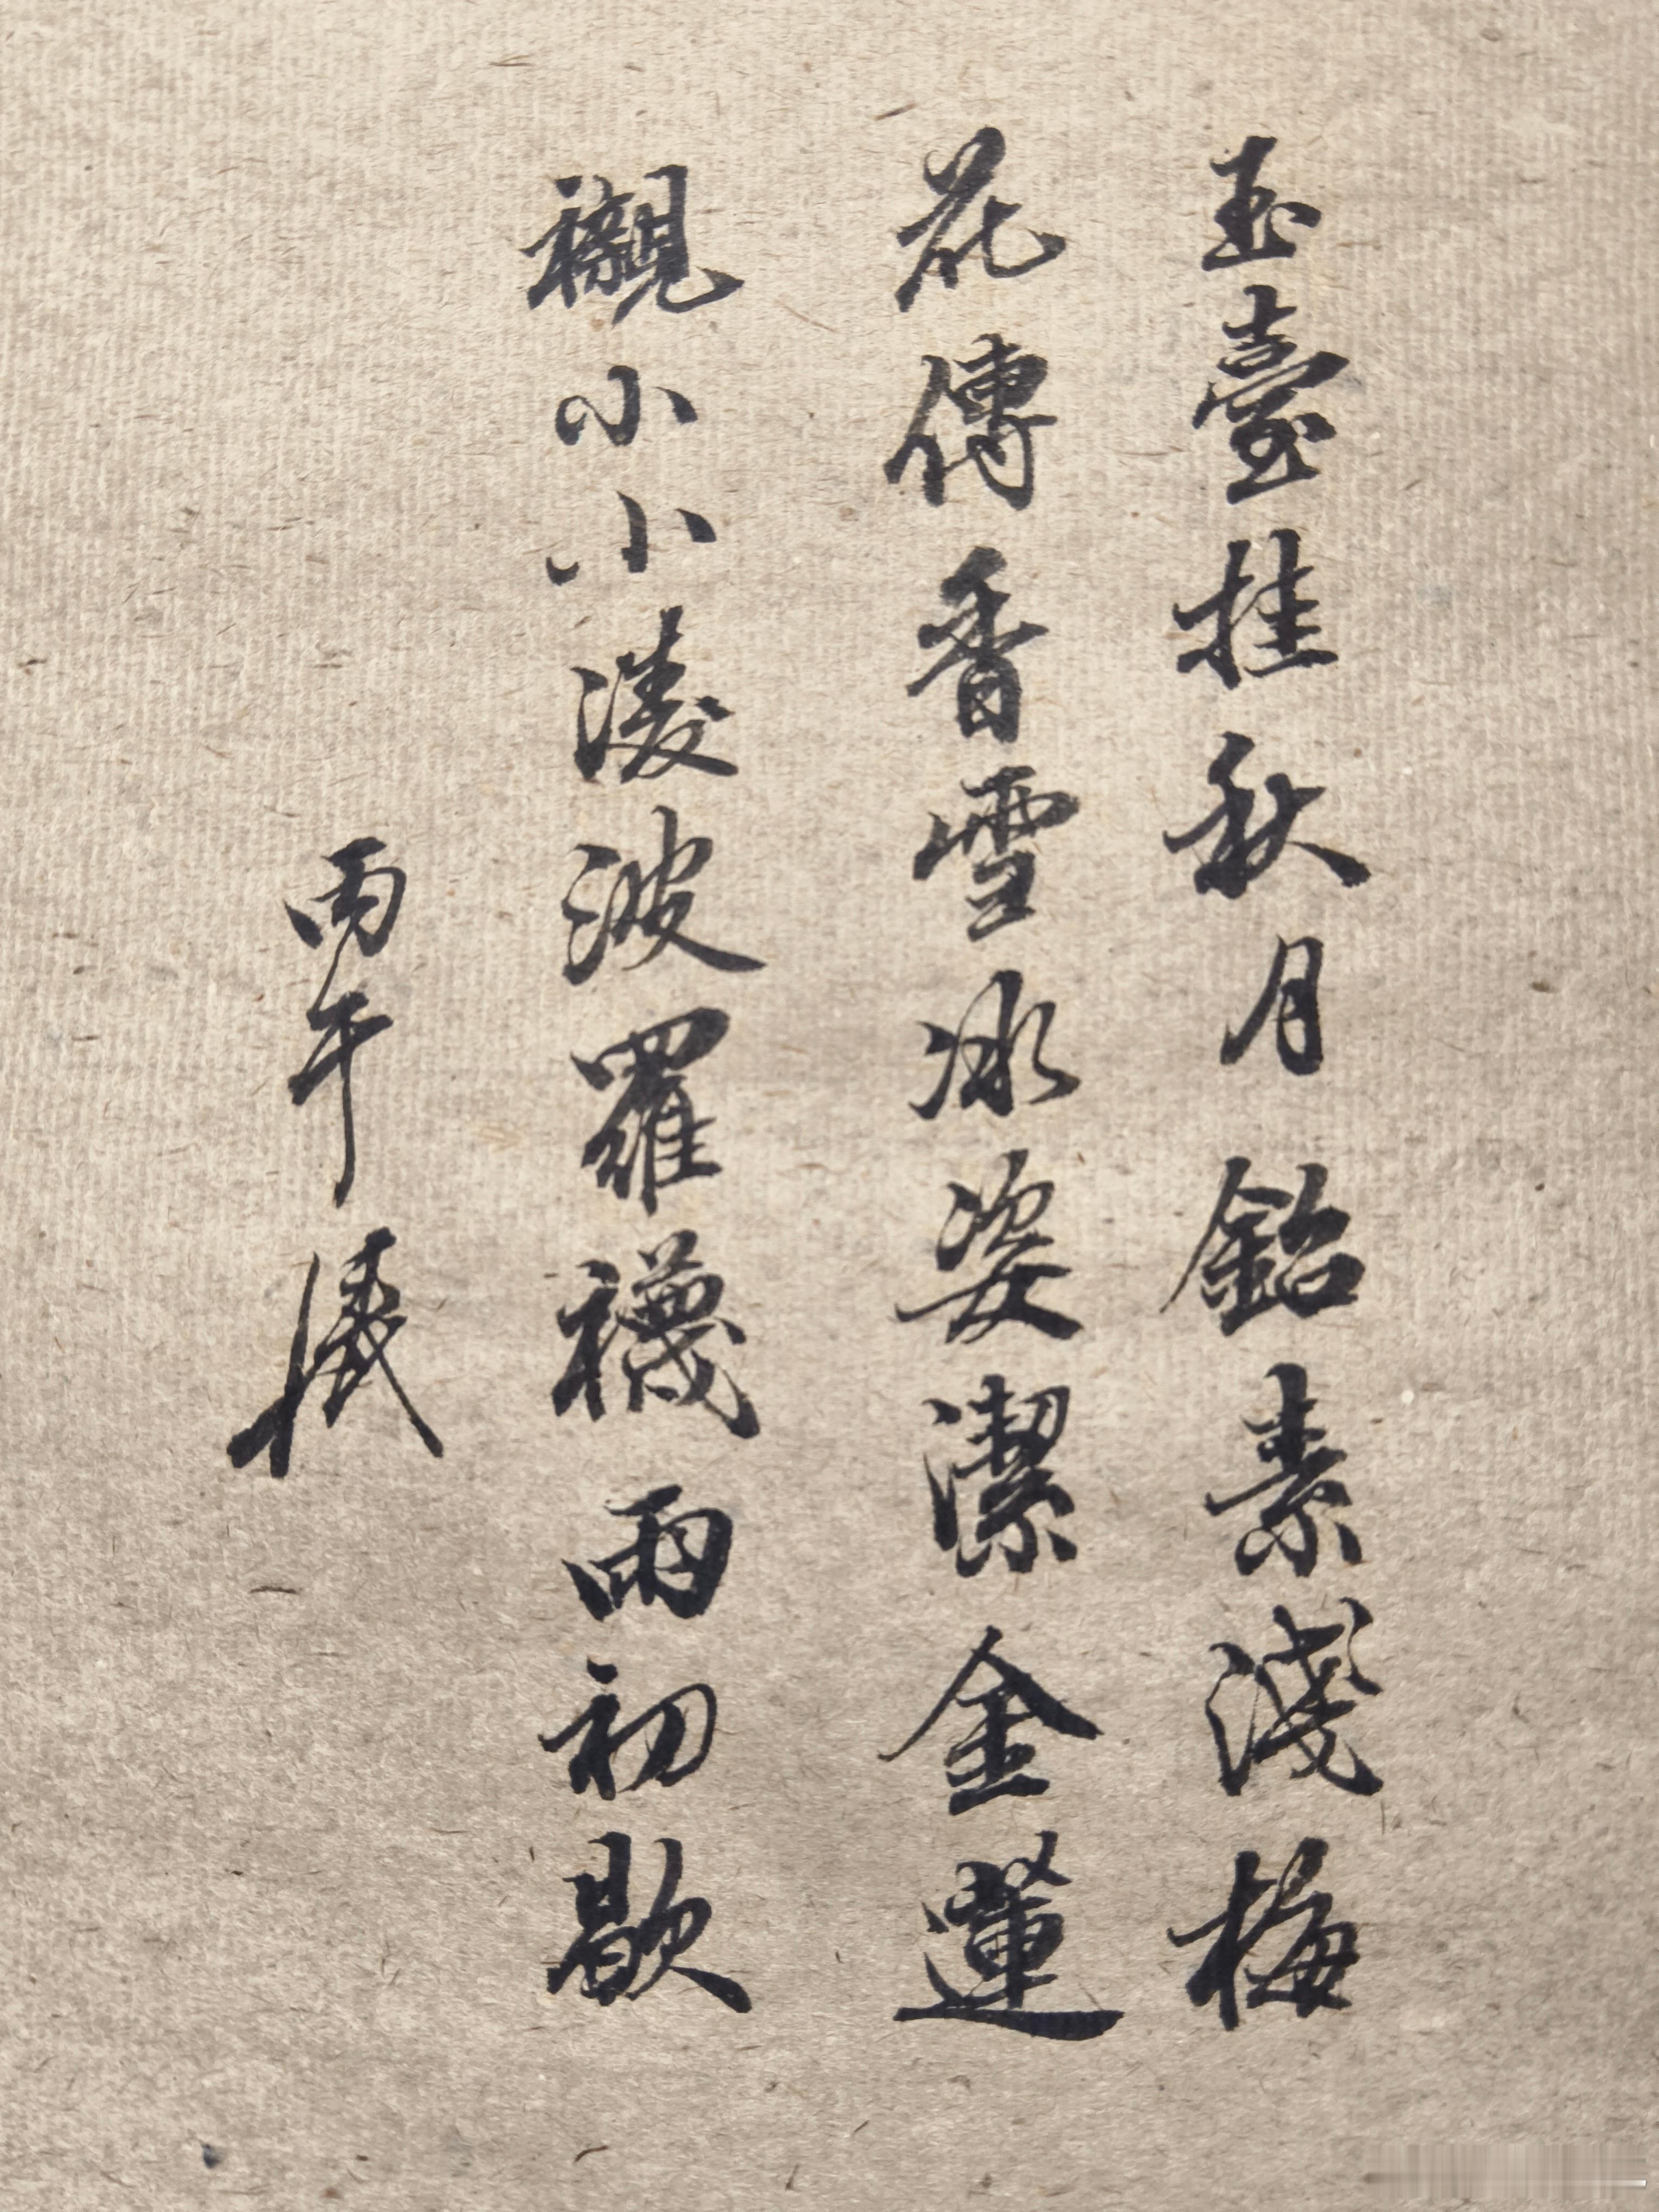 玉臺挂秋月鉛素淺梅
花傳香雪冰姿潔金蓮
襯小小淩波羅襪雨初歇
丙午儀